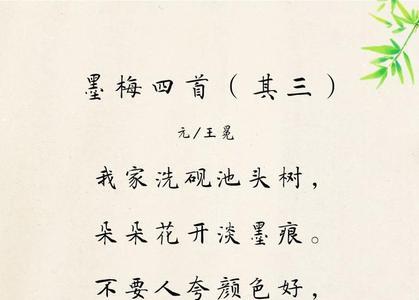 墨梅四首（其三）
元/王冕
我家洗砚池头树，
朵朵花开淡墨痕。
不要人夸颜色好，